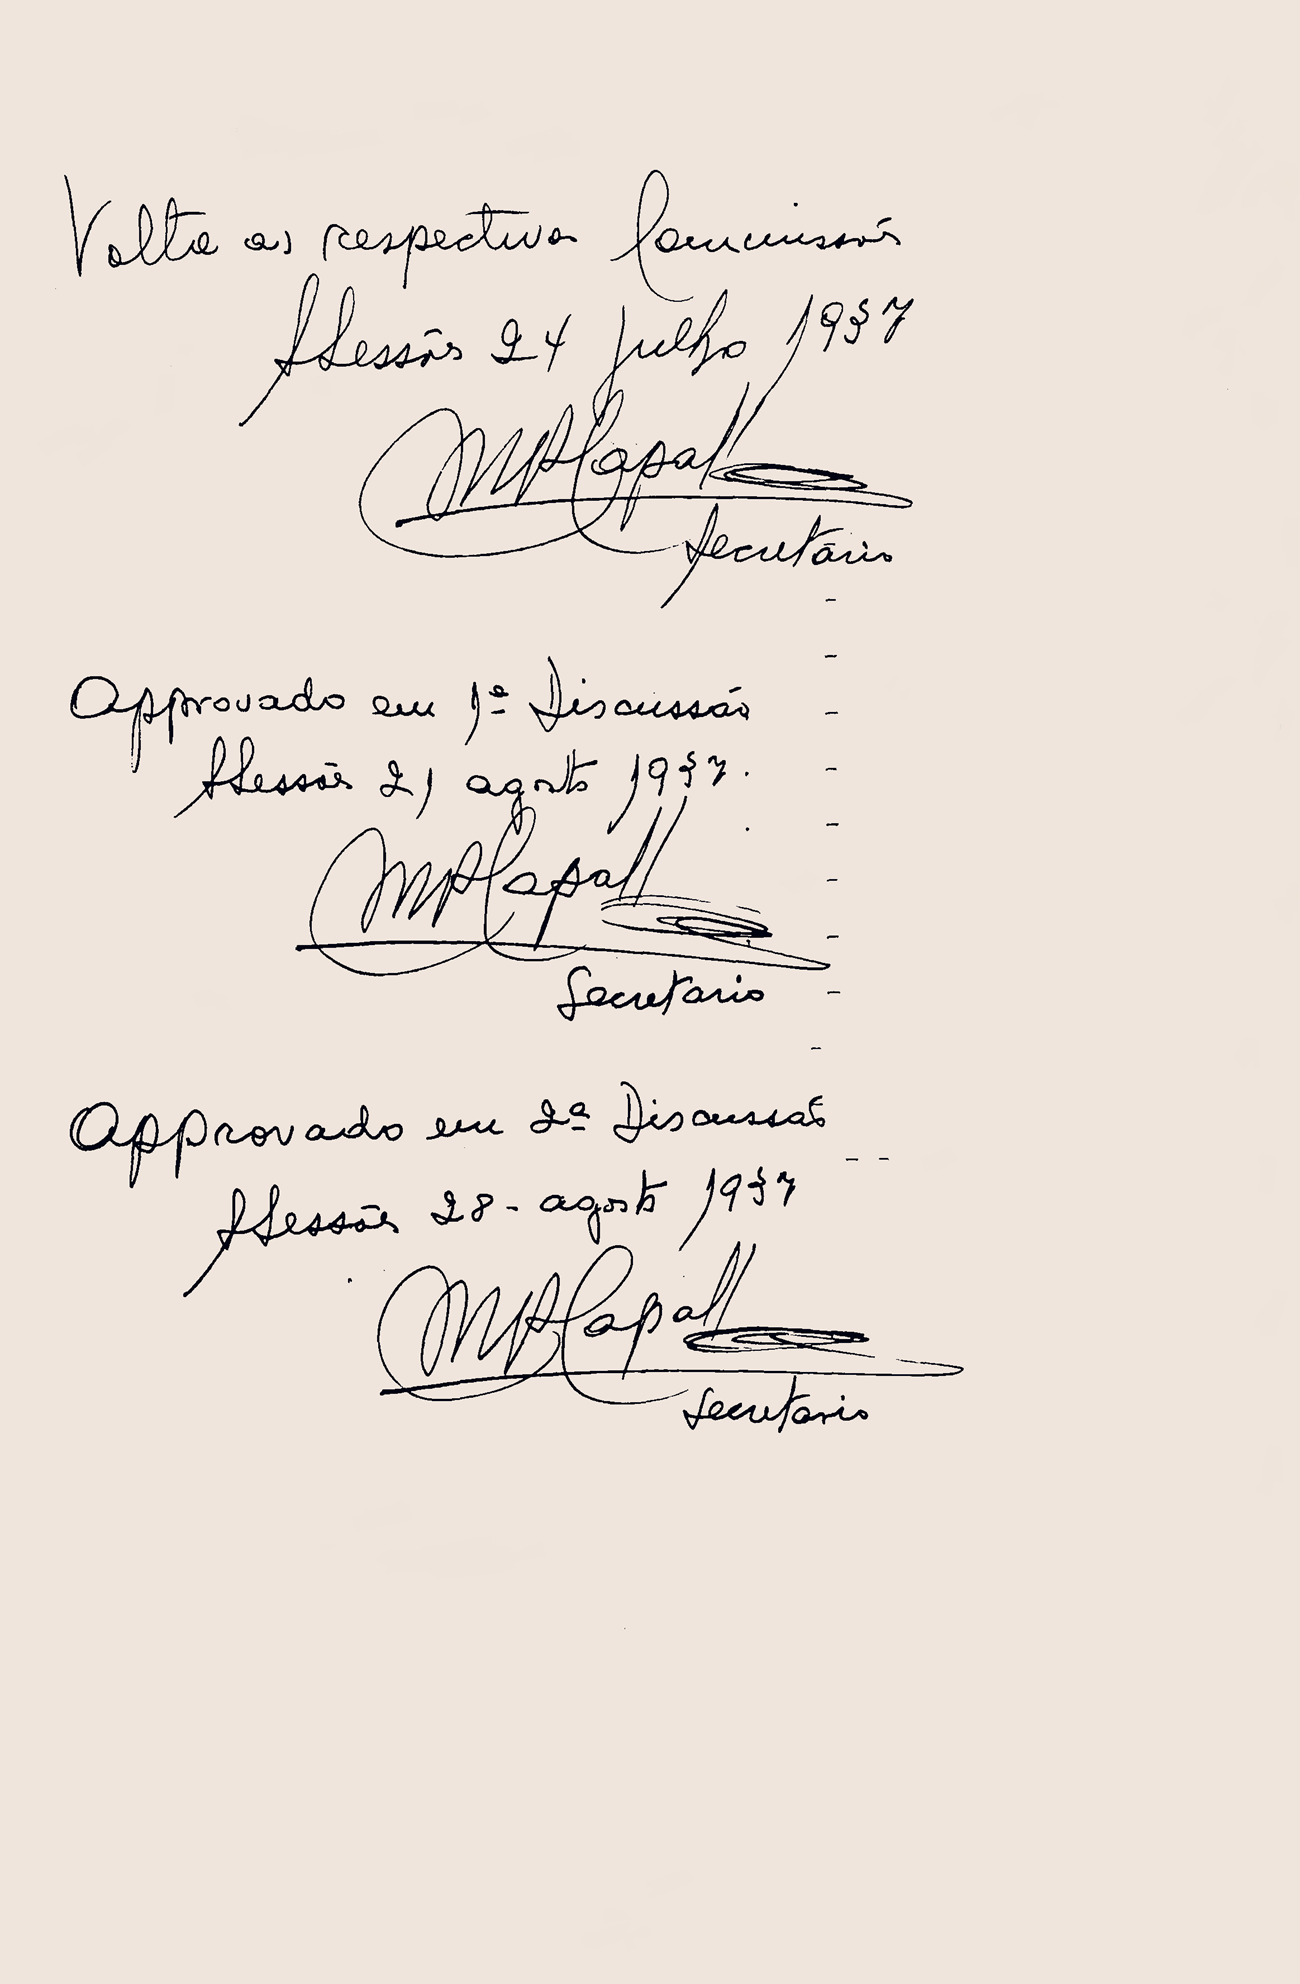 Volta as respectivas Commissões
SSessões 24 julho 1937
MPCapall
Secretário
Approvado em 1ª Discussão
SSessões 21 agosto 1937.
MPCapall
Secretario
Approvado em 2ª Discussão
SSessões 28 - agosto 1937
MPCapall
Secretario